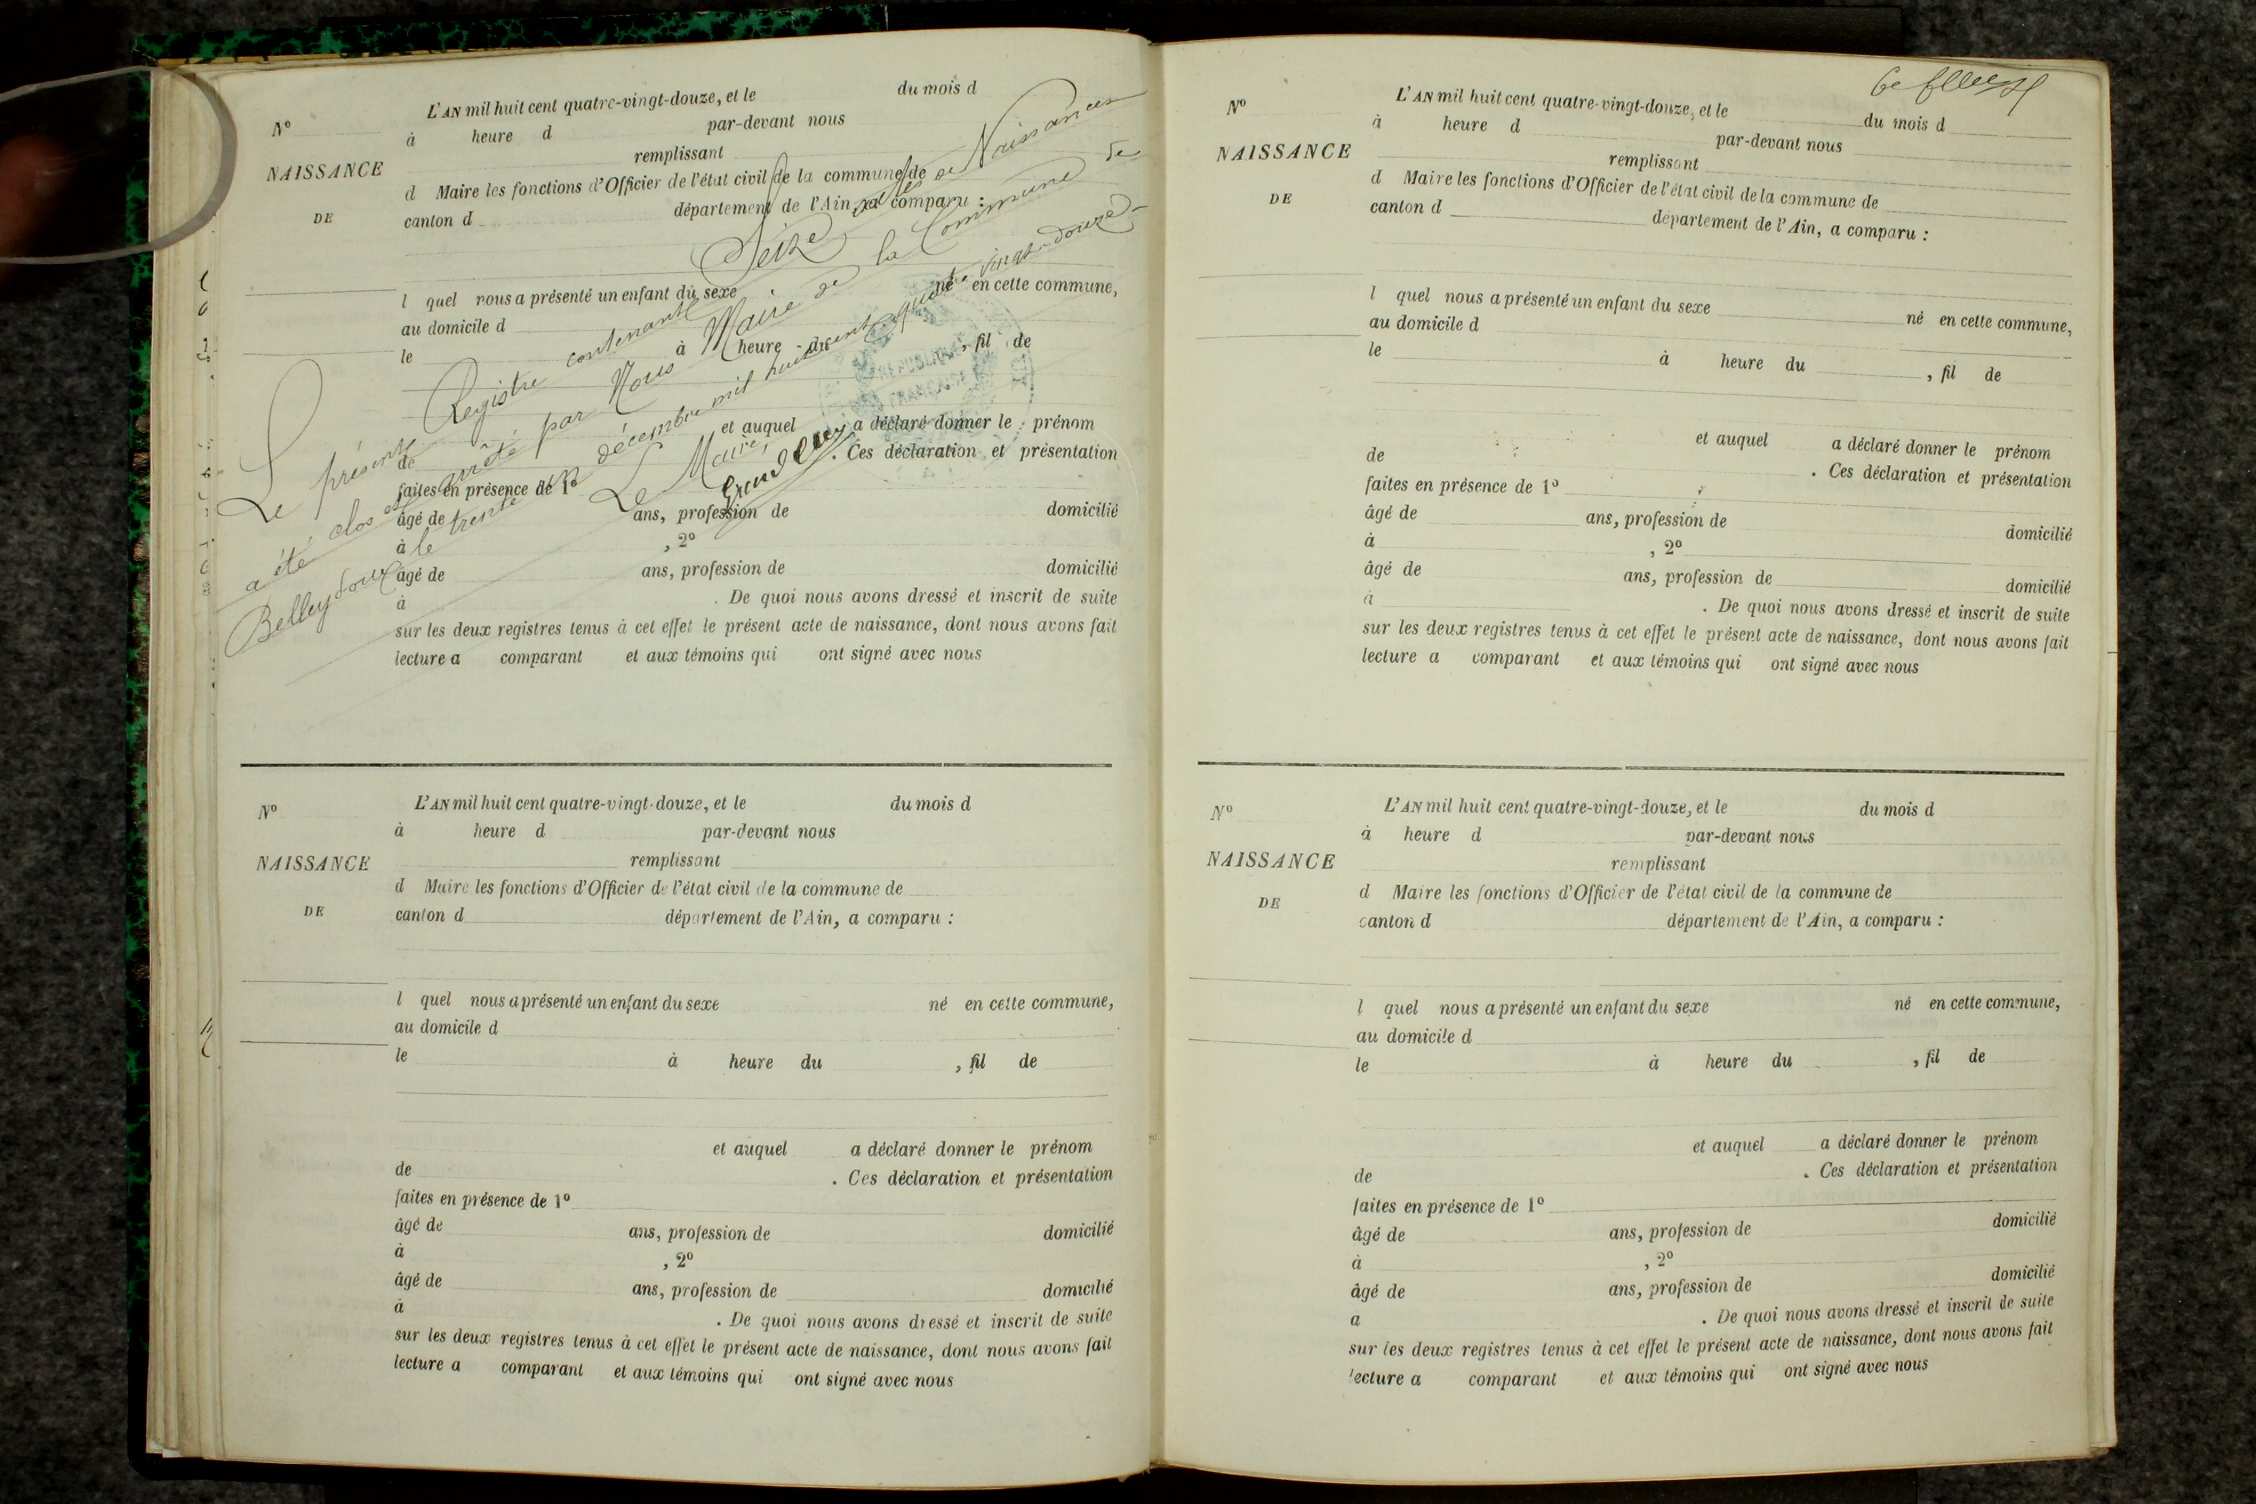 L'AN mil huit cent quatre-vingt-douze, et le du mois d
No à heure d par-devant nous
NAISSANCE remplissant
d Maire les fonctions d'Officier de l'état civil de la commune de
DE canton d département de l'Ain, a comparu :
l quel nous a présenté un enfant du sexe né en cette commune,
au domicile d
le à heure du , fil de
et auquel a déclaré donner le prénom
de . Ces déclaration et présentation
faites en présence de 1o
âgé de ans, profession de domicilié
à , 2o
âgé de ans, profession de domicilié
à . De quoi nous avons dressé et inscrit de suite
sur les deux registres tenus à cet effet le présent acte de naissance, dont nous avons fait
lecture a comparant et aux témoins qui ont signé avec nous
Le présent Registre contenant Seize actes de Naissances
a été clos et arrêté par Nous Maire de la Commune de
Belleydoux le trente un décembre mil huit cent quatre vingt-douze
Le Maire,
L'AN mil huit cent quatre-vingt-douze, et le du mois d
No à heure d par-devant nous
NAISSANCE remplissant
d Maire les fonctions d'Officier de l'état civil de la commune de
DE canton d département de l'Ain, a comparu :
l quel nous a présenté un enfant du sexe né en cette commune,
au domicile d
le à heure du , fil de
et auquel a déclaré donner le prénom
de . Ces déclaration et présentation
faites en présence de 1o
âgé de ans, profession de domicilié
à , 2o
âgé de ans, profession de domicilié
à . De quoi nous avons dressé et inscrit de suite
sur les deux registres tenus à cet effet le présent acte de naissance, dont nous avons fait
lecture a comparant et aux témoins qui ont signé avec nous
L'AN mil huit cent quatre-vingt-douze, et le du mois d
No à heure d par-devant nous
NAISSANCE remplissant
d Maire les fonctions d'Officier de l'état civil de la commune de
DE canton d département de l'Ain, a comparu :
l quel nous a présenté un enfant du sexe né en cette commune,
au domicile d
le à heure du , fil de
et auquel a déclaré donner le prénom
de . Ces déclaration et présentation
faites en présence de 1o
âgé de ans, profession de domicilié
à , 2o
âgé de ans, profession de domicilié
à . De quoi nous avons dressé et inscrit de suite
sur les deux registres tenus à cet effet le présent acte de naissance, dont nous avons fait
lecture a comparant et aux témoins qui ont signé avec nous
L'AN mil huit cent quatre-vingt-douze, et le du mois d
No à heure d par-devant nous
NAISSANCE remplissant
d Maire les fonctions d'Officier de l'état civil de la commune de
DE canton d département de l'Ain, a comparu :
l quel nous a présenté un enfant du sexe né en cette commune,
au domicile d
le à heure du , fil de
et auquel a déclaré donner le prénom
de . Ces déclaration et présentation
faites en présence de 1o
âgé de ans, profession de domicilié
à , 2o
âgé de ans, profession de domicilié
a . De quoi nous avons dressé et inscrit de suite
sur les deux registres tenus à cet effet le présent acte de naissance, dont nous avons fait
lecture a comparant et aux témoins qui ont signé avec nous